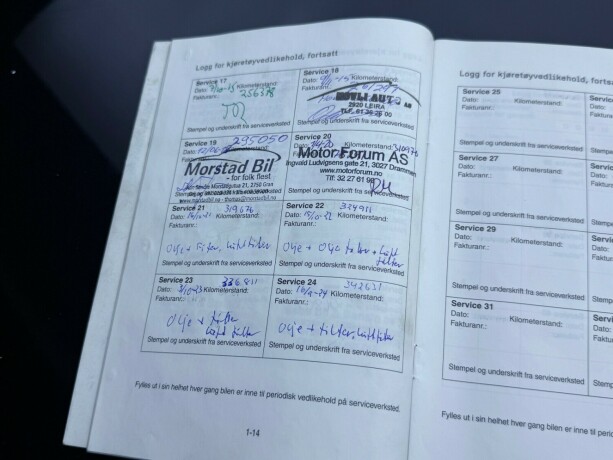 Logg for kjøretøyvedlikehold, fortsatt
Service 17
Dato: Kilometerstand:
256378
Fakturanr.:
Stempel og underskrift fra serviceverksted
Service 18
Dato: Kilometerstand:
Fakturanr.:
MØVLI AUTO AS
2920 LEIRA
Stempel og underskrift fra serviceverksted
Service 19
295050
Morstad Bil
- for folk flest
Service 20
310976
Motor Forum AS
Ingvald Ludvigsens gate 21, 3027 Drammen
www.motorforum.no
Tlf: 32 27 61 98
Stempel og underskrift fra serviceverksted
Service 21
319676
Dato: Kilometerstand:
Fakturanr.:
Olje + Filter, Luftfilter
Stempel og underskrift fra serviceverksted
Service 22
334911
Dato: Kilometerstand:
Fakturanr.:
Olje + Olje filter + Luft
filter
Stempel og underskrift fra serviceverksted
Service 23
336811
Dato: Kilometerstand:
Fakturanr.:
Olje + Filter
Luft filter
Stempel og underskrift fra serviceverksted
Service 24
342631
Dato: Kilometerstand:
Fakturanr.:
Olje + filter, Luftfilter
Stempel og underskrift fra serviceverksted
Fylles ut i sin helhet hver gang bilen er inne til periodisk vedlikehold på serviceverksted.
1-14
Logg for kjøretøyvedlikehold, forts
Service 25
Dato: Kilometerstand:
Fakturanr.:
Stempel og underskrift fra serviceverksted
Service 27
Dato: Kilometerstand:
Fakturanr.:
Stempel og underskrift fra serviceverksted
Service 29
Dato: Kilometerstand:
Fakturanr.:
Stempel og underskrift fra serviceverksted
Service 31
Dato: Kilometerstand:
Fakturanr.:
Stempel og underskrift fra serviceverksted
Fylles ut i sin helhet hver gang bilen er inne til perio